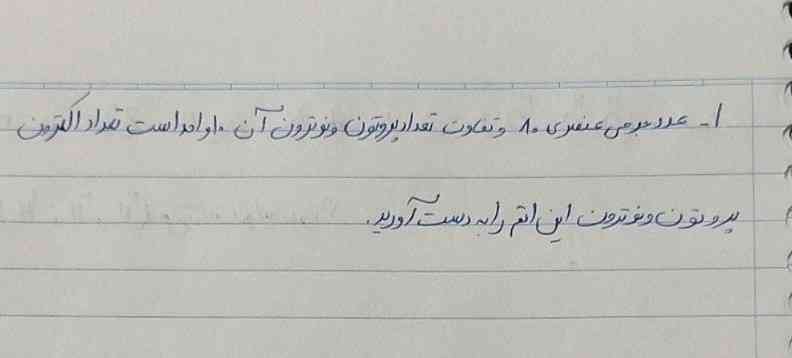 ۱- عدد جرمی عنصری ۸۰ و تفاوت تعداد پروتون و نوترون آن ۱۰ واحد است تعداد الکترون
پروتون و نوترون این اتم را به دست آورید.